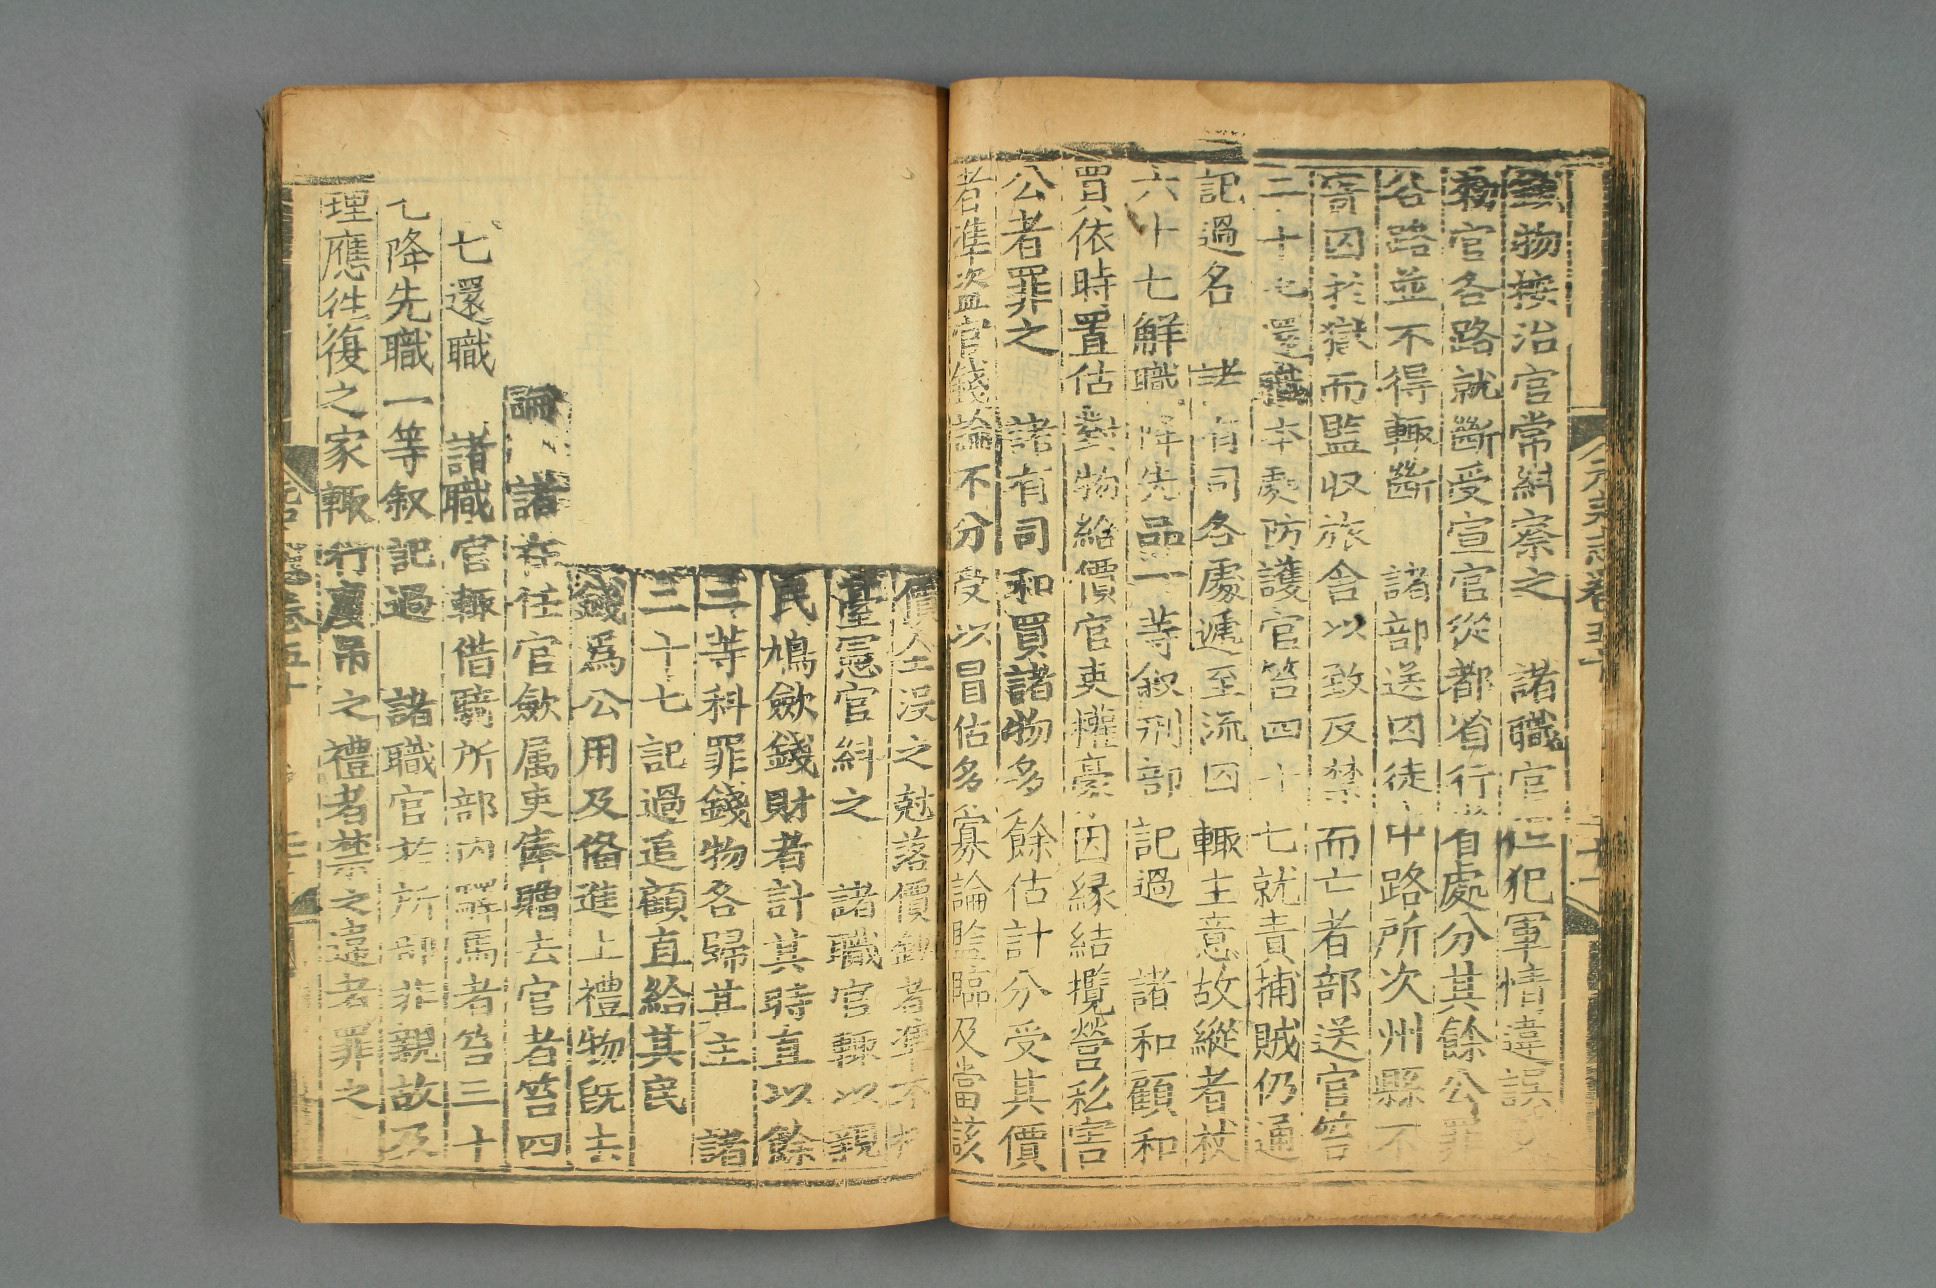 錢物按治官常糾察之　諸職官但犯軍情違誤
勑官各路就斷受宣官從都省行　有處分其餘公罪
各路並不得輒斷　諸部送囚徒中路所次州縣不
寄囚於獄而監収旅舎以致反禁而亡者部送官笞
二十七還職本處防護官笞四十七就責捕賊仍通
記過名　諸有司各處遞至流囚輒主意故縱者杖
六十七解職降先品一等叙刑部記過　諸和顧和
買依時置估對物給價官吏權豪因緣結攬營私害
公者罪之　諸有司和買諸物多餘估計分受其價
者準盜官錢論不分受以冒估多寡論監臨及當該
價　没之尅落價鈔者準不
臺憲官糾之　諸職官輒以親
民鳩歛錢財者計其時直以餘
三等科罪錢物各歸其主　諸
三十七記過追顧直給其民
錢爲公用及俻進上禮物旣去
論　諸在任官歛属吏俸贈去官者笞四
七還職　諸職官輒借騎所部内驛馬者笞三十
七降先職一等叙記過　諸職官於所部非親故及
理應往復之家輒行慶吊之禮者禁之違者罪之